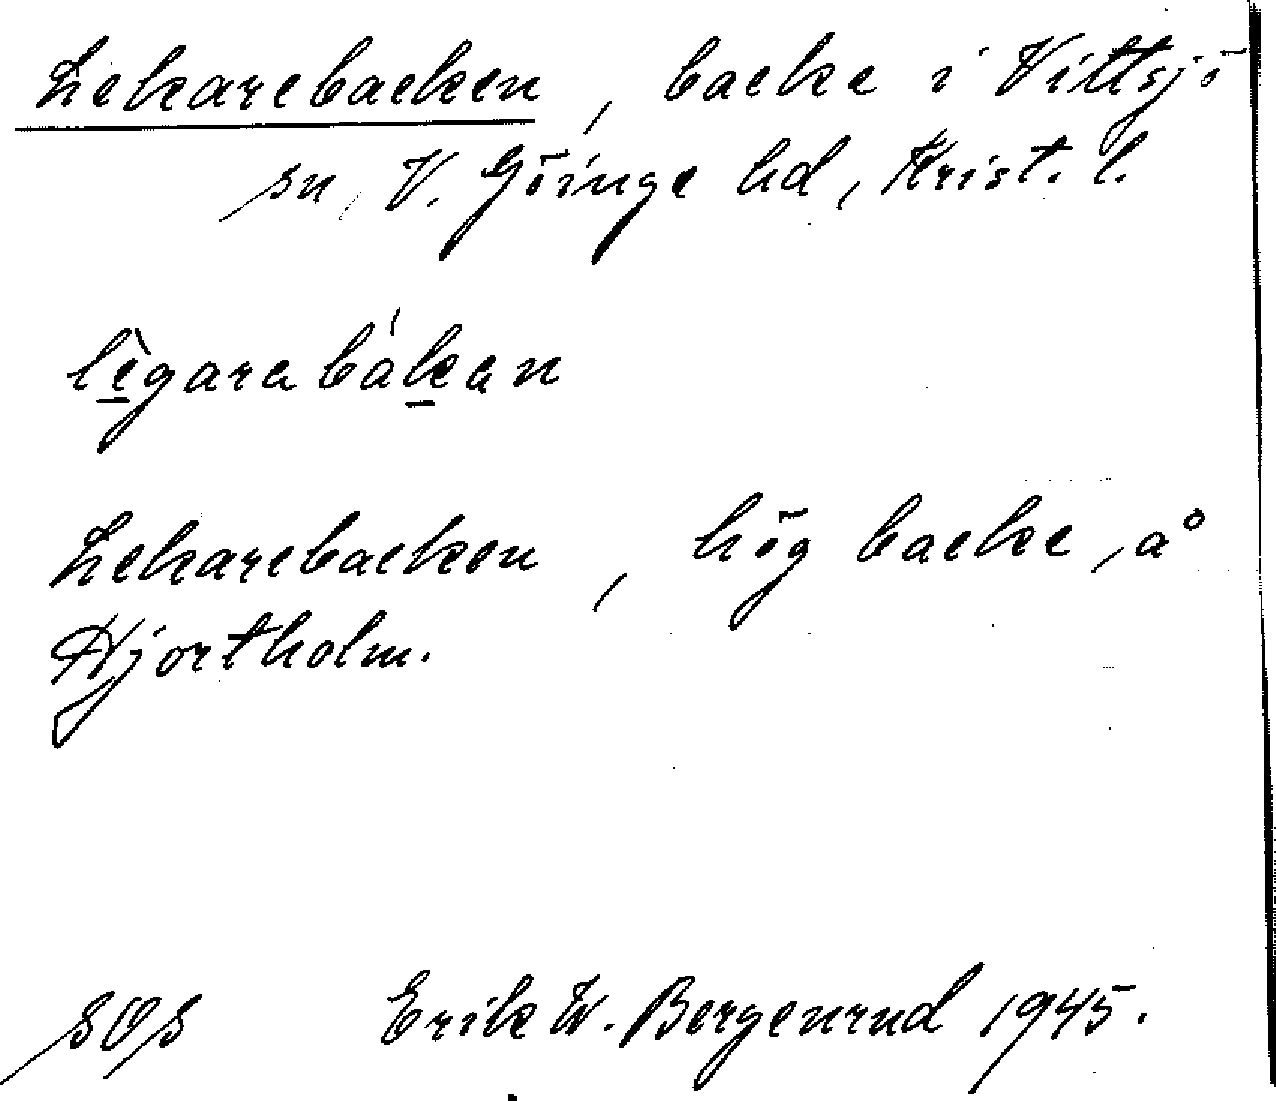 Lekarebacken, backe i Vittsjö
sn, V. Göinge hd, Krist. l.
lè̠garabák̠an
Lekarebacken, hög backe, å
Hjortholm.
SOS Erik W. Bergenrud 1945.